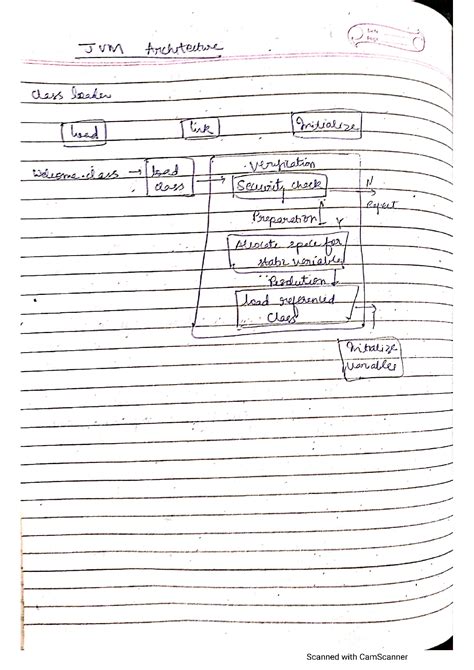 JVM Architecture
Class loader
load
link
Initialize
Welcome.class → load class
Verification
Security check
N
Reject
Preparation
Y
Allocate space for
static variable
Resolution
load referenced
Class
Initialize
variables
Scanned with CamScanner